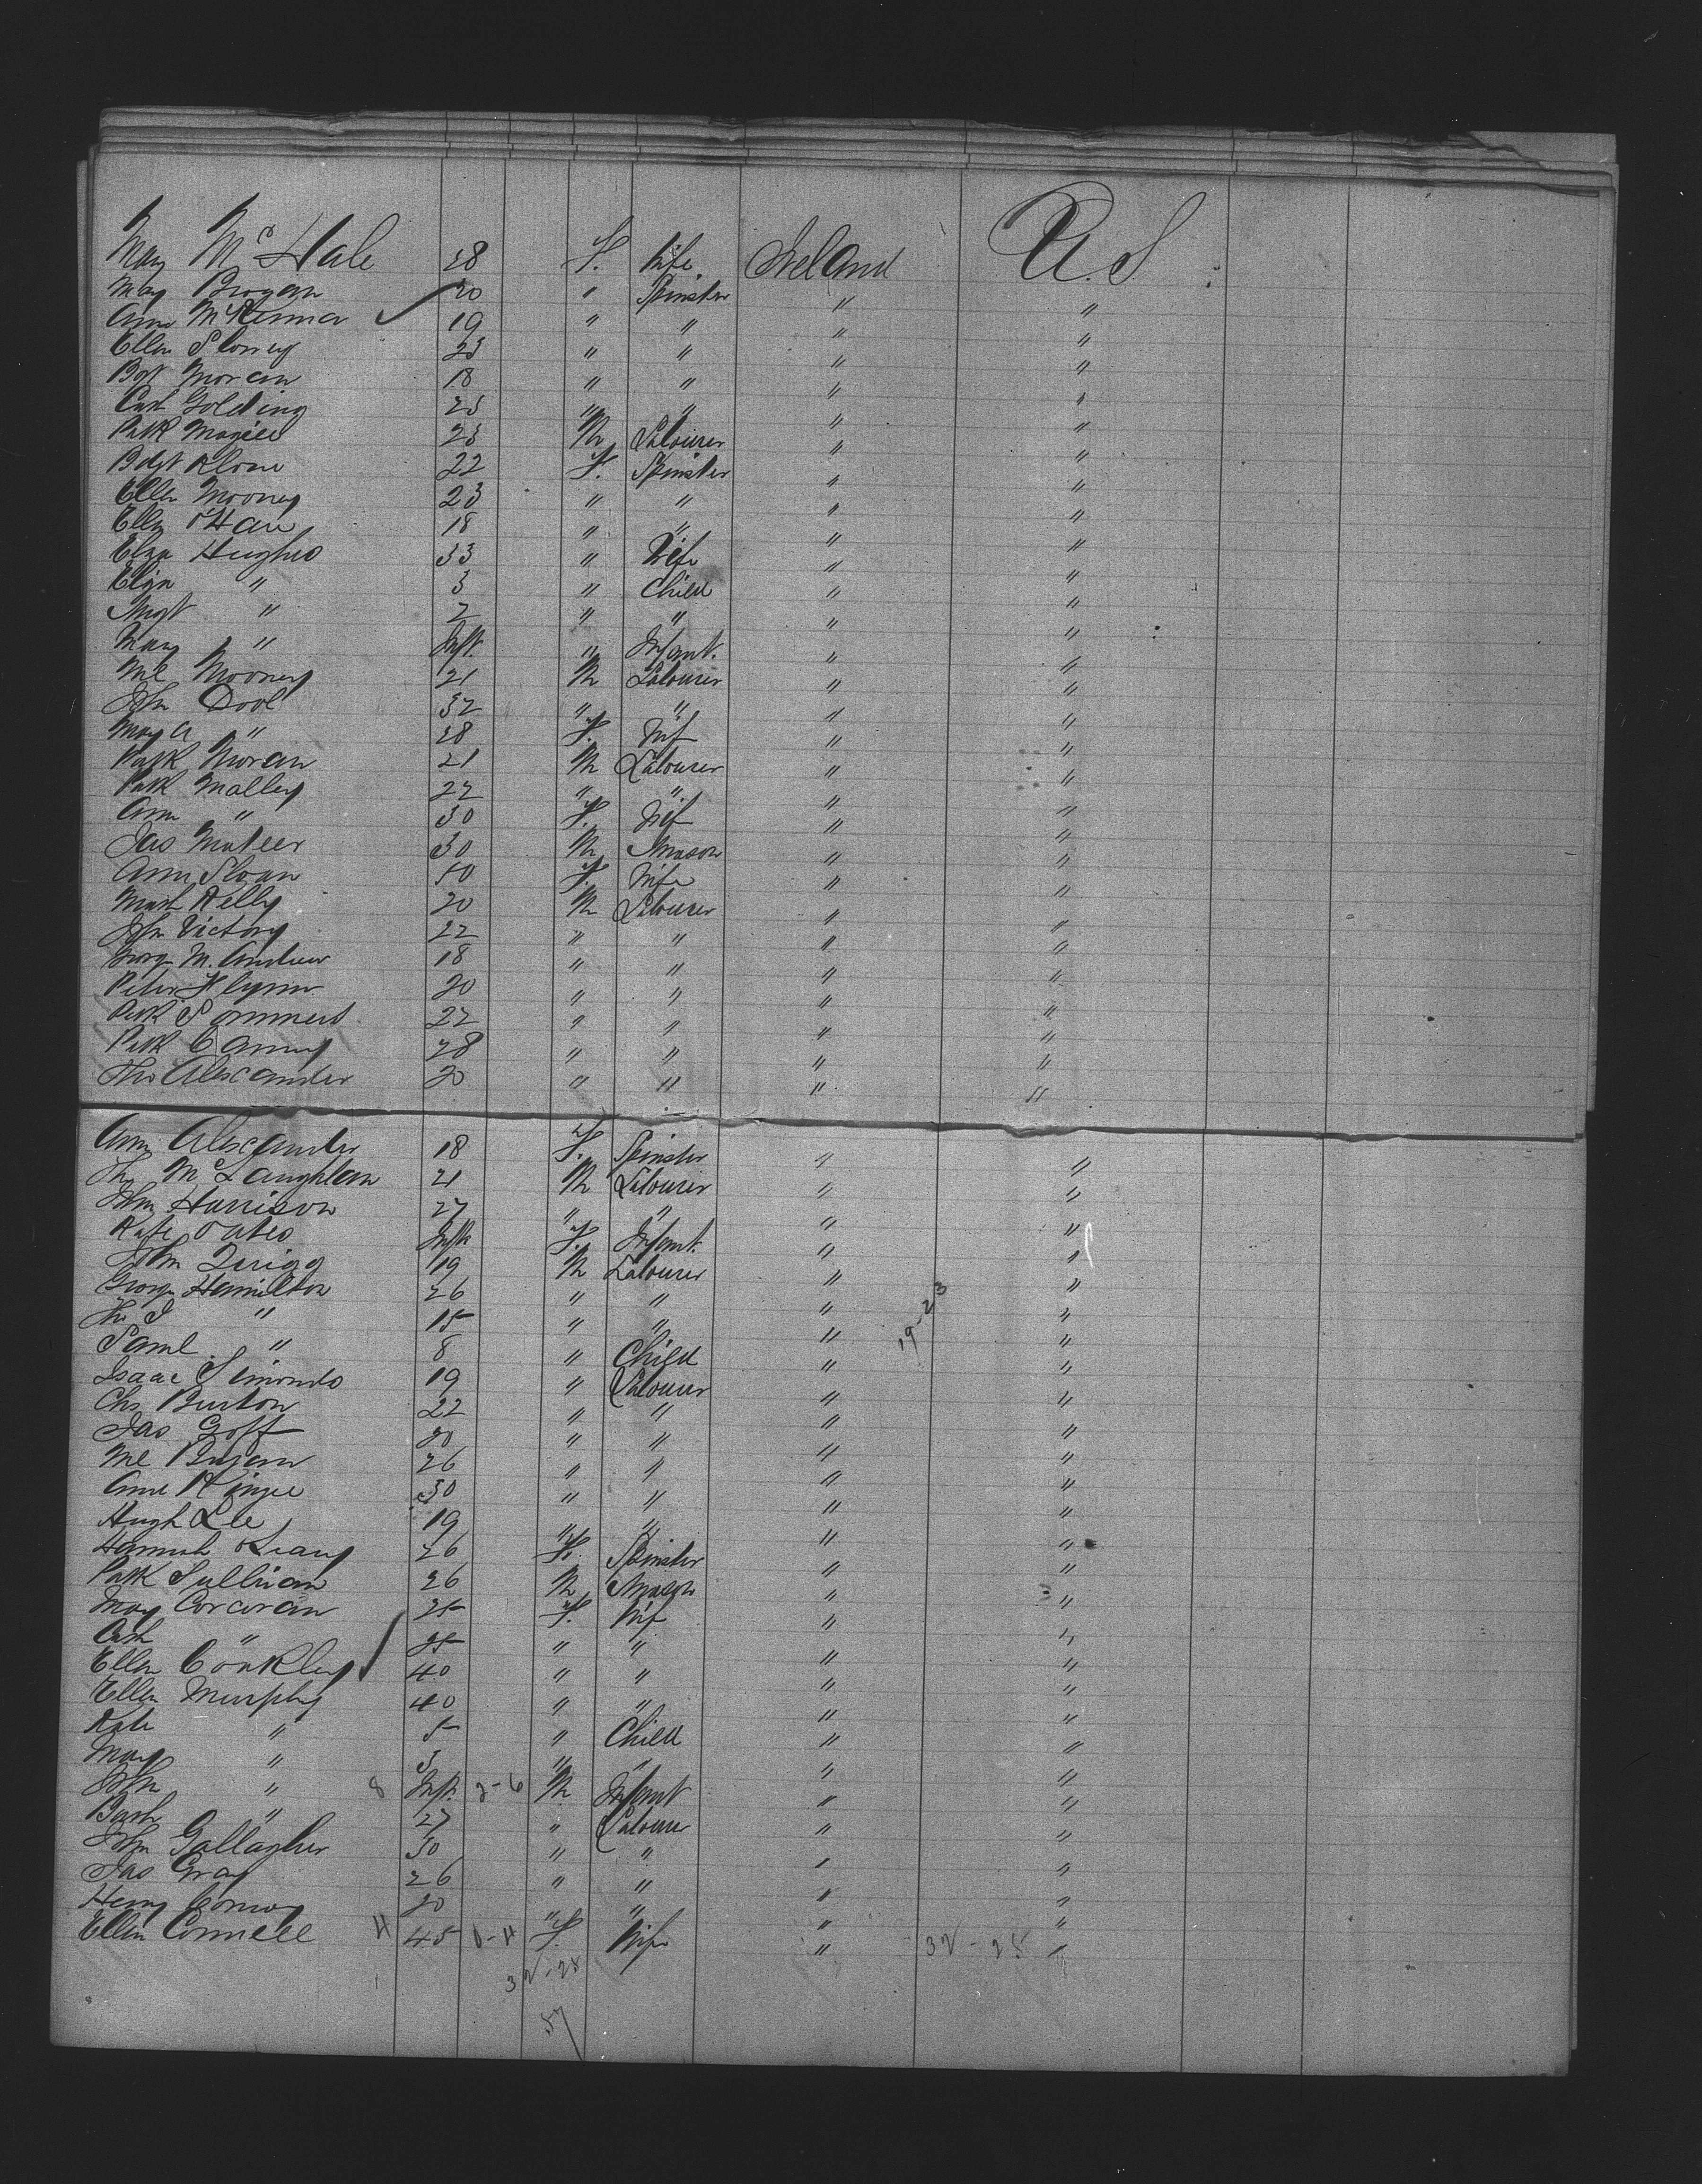 May McHale 28 F. Wife Ireland U.S
May Brogan 20 " Spinster " "
Ann McKenna 19 " " " "
Ellen Slowey 23 " " " "
Bgt Moran 18 " " " "
Cath Golding 25 " " " "
Patk Magill 23 M Labourer " "
Bdgt 22 F. Spinster " "
Ellen Mooney 23 " " " "
Ellen O'Hare 18 " " " "
Eliza Hughes 33 " Wife " "
Eliza " 3 " Child " "
Mgt " 2 " " " "
Mary " Inft. " Infant. " "
Ml Mooney 21 M Labourer " "
Jhn Dool 32 " " " "
May A " 28 F. Wif " "
Patk Moran 21 M Labourer " "
Patk Malley 22 " " " "
Ann " 30 F. Wif " "
Jas Mateer 30 M Mason " "
Ann Sloan 50 F. Wife " "
Mark Kelly 20 M Labourer " "
Jhn Victory 22 " " " "
George M. Andrew 18 " " " "
Peter Flynn 20 " " " "
Patk 22 " " " "
Patk Canny 28 " " " "
Tho Alexander 20 " " " "
Ann Alexander 18 F. Spinster " "
Th McLaughlan 21 M Labourer " "
Jhn Harrison 27 " " " "
Kate Oates Inft F. Infant. " "
Jhn Quigg 19 M Labourer " "
George Hamilton 26 " " " 19-23 "
Th J " 15 " " " "
Saml " 8 " Child " "
Isaac Simonds 19 " Labourer " "
Chs Burton 22 " " " "
Jas Goff 20 " " " "
Ml 26 " " " "
30 " " " "
Hugh Lee 19 " " " "
Hannah Leary 26 F. Spinster " "
Patk Sullivan 26 M Mason " "
May Corcoran 25 F. Wif " "
Cath " 25 " " " "
Ellen Coakley 40 " " " "
Ellen Murphy 40 " " " "
Kate " 5 " Child " "
May " 3 " " " "
Jhn " 8 Inft. 2-6 M Infant " "
" 27 " Labourer " "
Jhn Gallagher 30 " " " "
Jas Gray 26 " " " "
Henry Conway 20 " " " "
Ellen Connell 4 45 F. Wife " 32-25 "
32-25
57